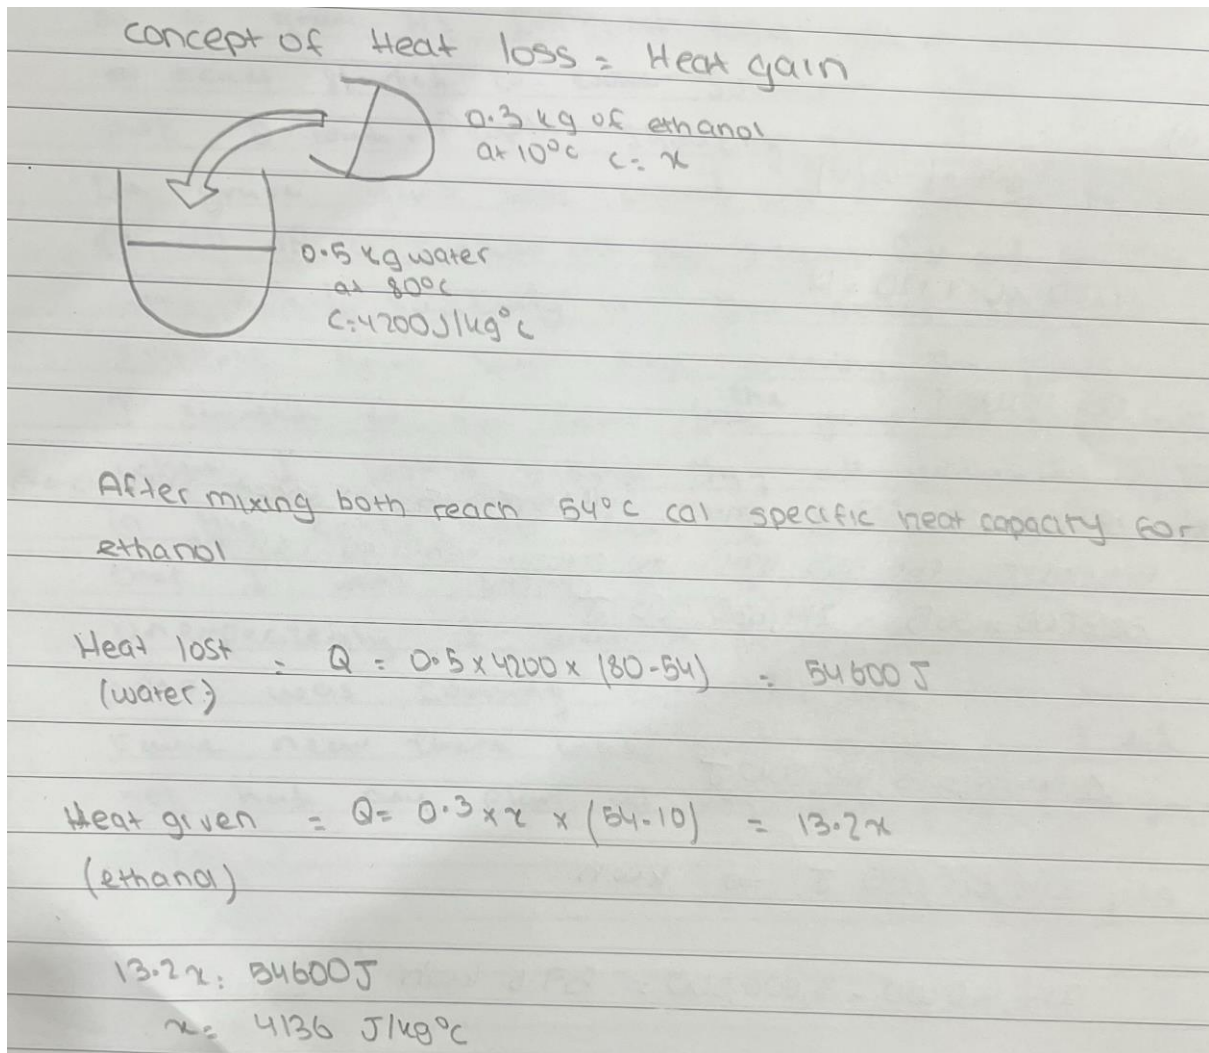 concept of Heat loss = Heat gain
0.3 kg of ethanol
at 10°c c= x
0.5 kg water
at 80°c
C=4200J/kg°c
After mixing both reach 54°c cal specific heat capacity for
ethanol
Heat lost = Q = 0.5 x 4200 x (80-54) = 54600J
(water)
Heat given = Q= 0.3 x x x (54-10) = 13.2x
(ethanol)
13.2x = 54600J
x= 4136 J/kg°c